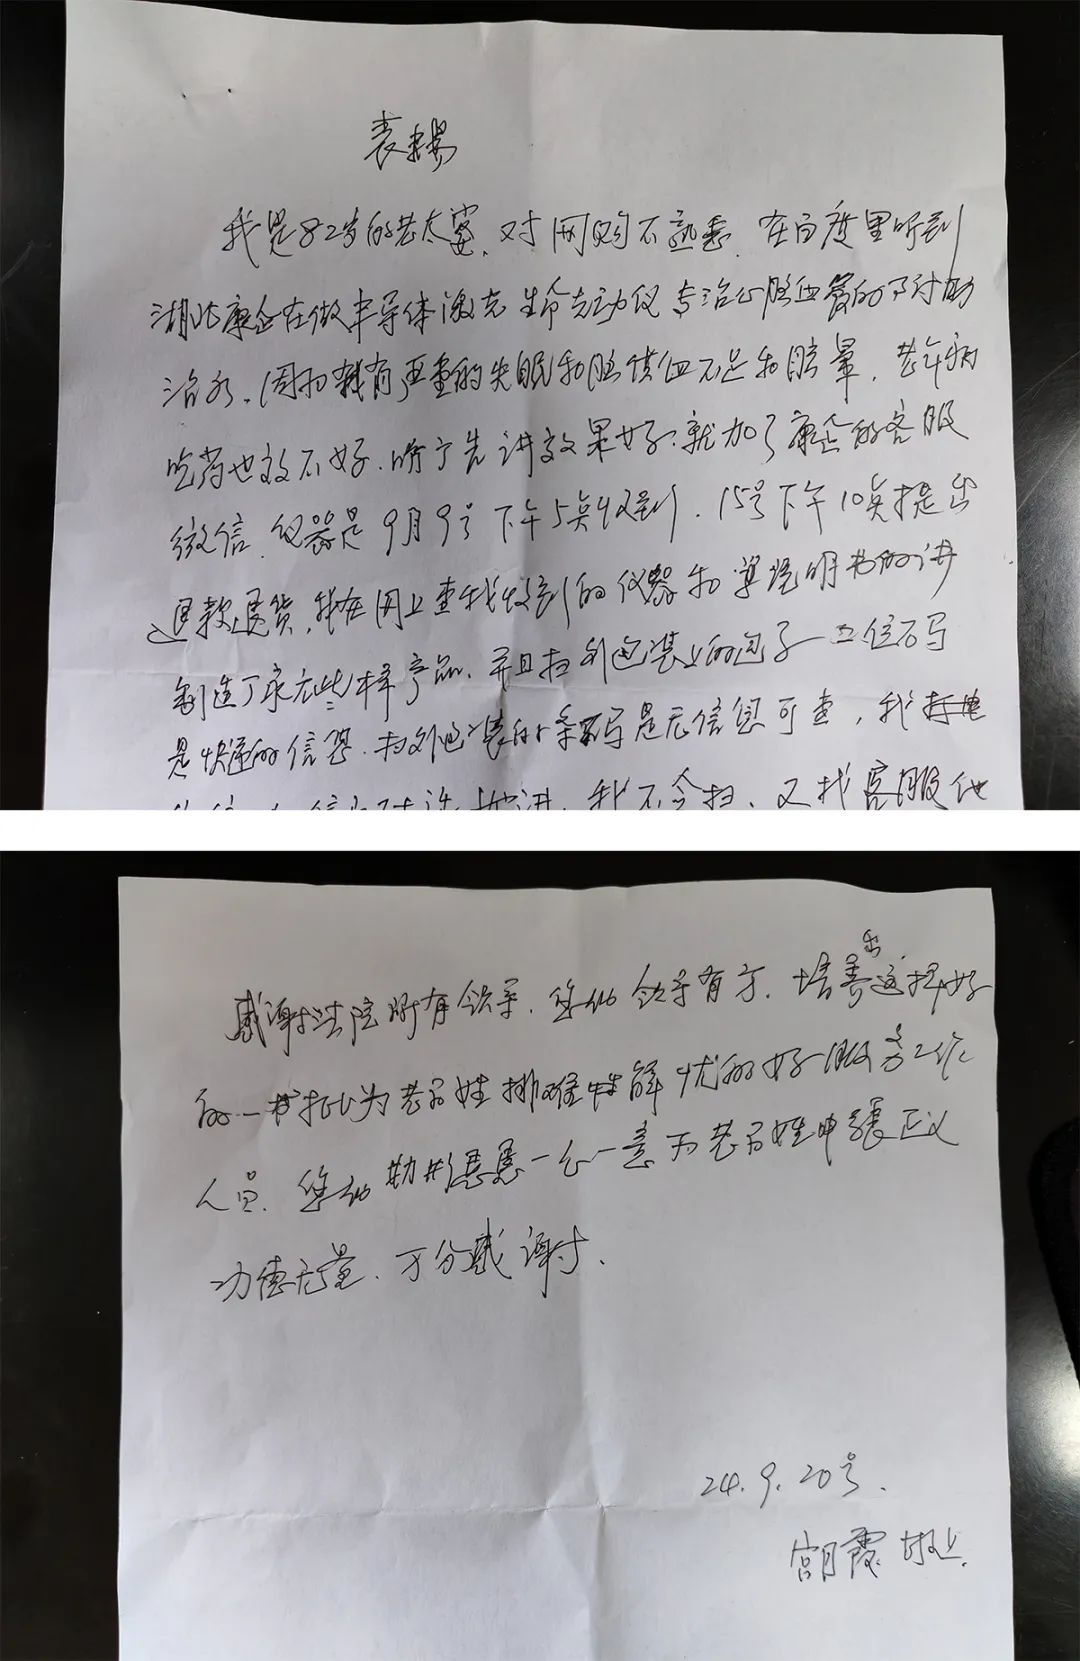 表扬
我是82岁的老太婆、对网购不熟悉、在百度里听到
湖北康企在做半导体激光生命启动仪专治心脑血管的
治水、因为我有严重的失眠和脑供血不足和脑晕、老年病
吃药也效不好、听了先讲效果好、就加了康企的客服
微信、仪器是9月9号下午5点收到、15号下午10点提出
退款退货、我在网上查我收到的仪器和说明书的讲
制造厂家无些样产品、并且扫外包装上的包子二位码
是快递的信息、扫外包装的条码是无信息可查,我
我不会扫、又找客服他
感谢法院所有领导、您们领导有方、培养出这样好
的一批为老百姓排难解忧的好服务工作
人员、您们勤勤恳恳一心一意为老百姓申张正义
功德无量、万分感谢、
24.9.20号.
宫月霞 敬上